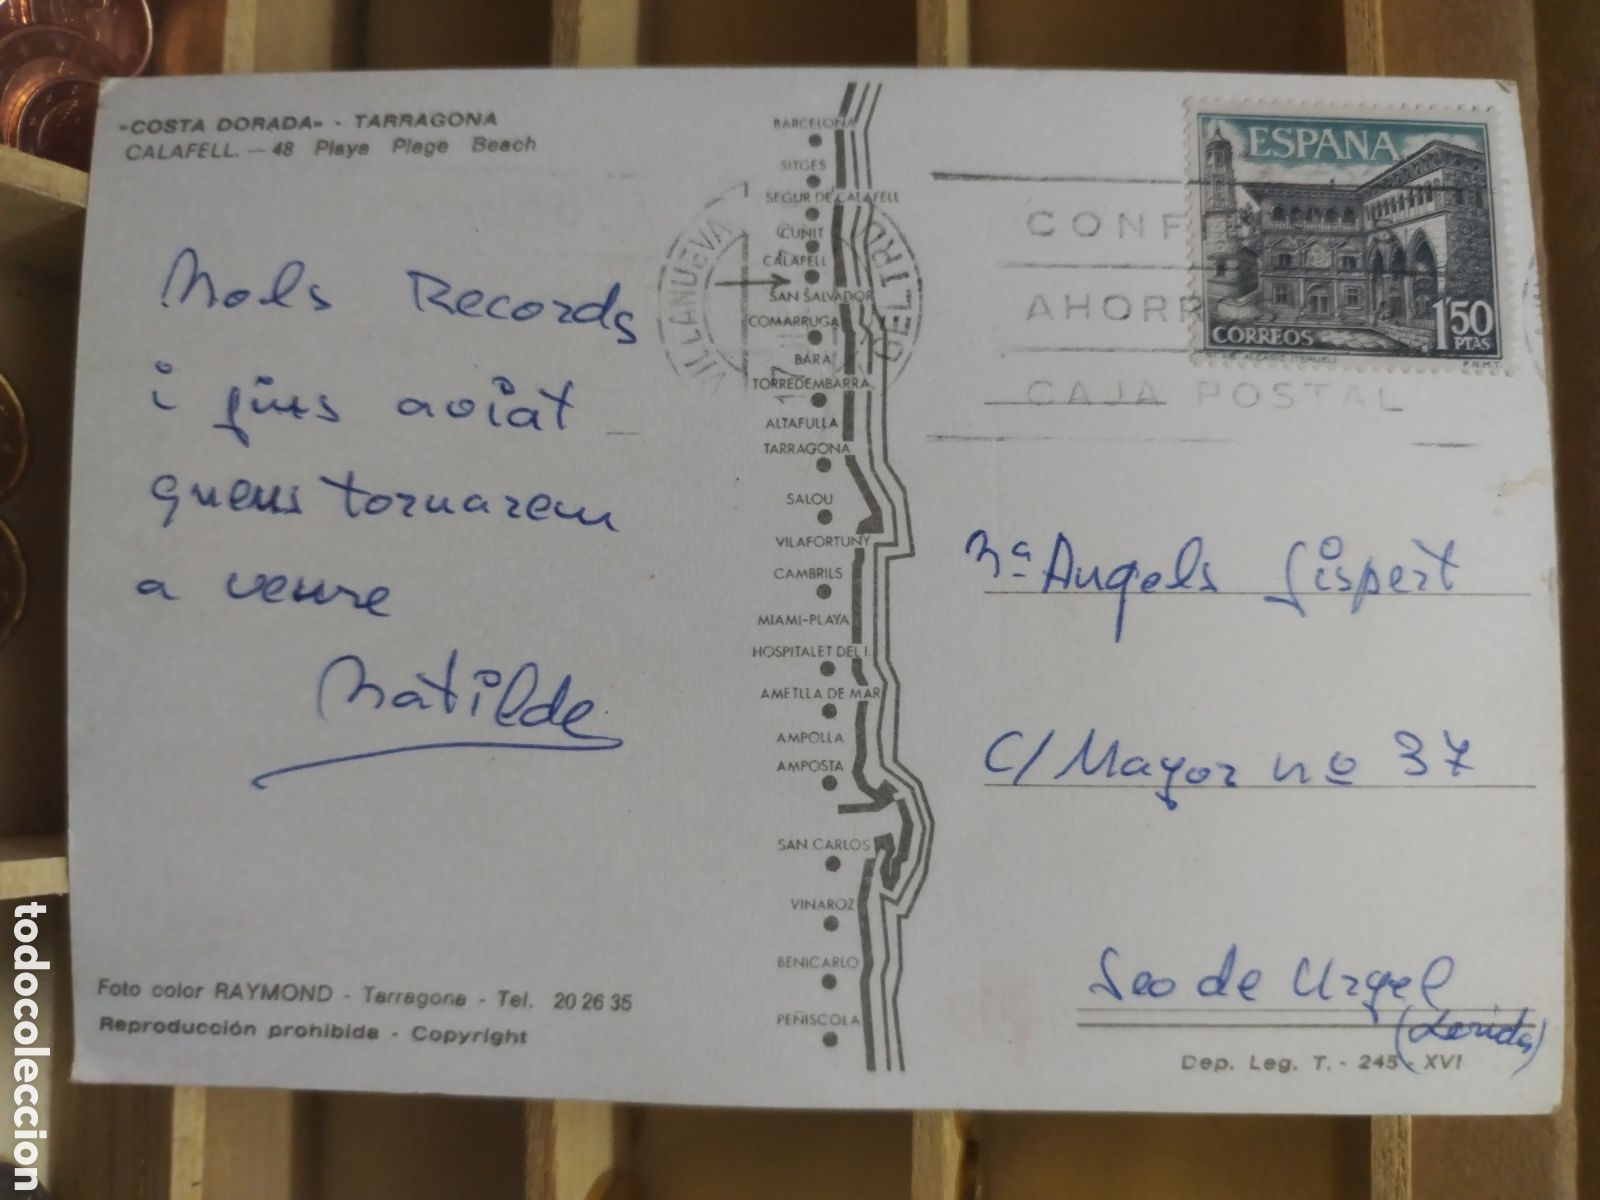 «COSTA DORADA» - TARRAGONA
CALAFELL. — 48 Playa Plage Beach
Mols Records
i fins aviat
quens tornarem
a veure
Matilde
Foto color RAYMOND - Tarragona - Tel. 20 26 35
Reproducción prohibida - Copyright
BARCELONA
SITGES
SEGUR DE CALAFELL
CUNIT
CALAFELL
SAN SALVADOR
COMARRUGA
BARA
TORREDEMBARRA
ALTAFULLA
TARRAGONA
SALOU
VILAFORTUNY
CAMBRILS
MIAMI-PLAYA
HOSPITALET DEL I.
AMETLLA DE MAR
AMPOLLA
AMPOSTA
SAN CARLOS
VINAROZ
BENICARLO
PEÑISCOLA
VILLANUEVA
GELTRU
CONF
AHORR
CAJA POSTAL
ESPAÑA
CORREOS
1'50
PTAS
Nº 46 ALCAÑIZ (TERUEL)
F.N.M.T.
Mª Angels Gispert
C/ Mayor nº 37
Seo de Urgel
(Lerida)
Dep. Leg. T. - 245 - XVI
todocoleccion